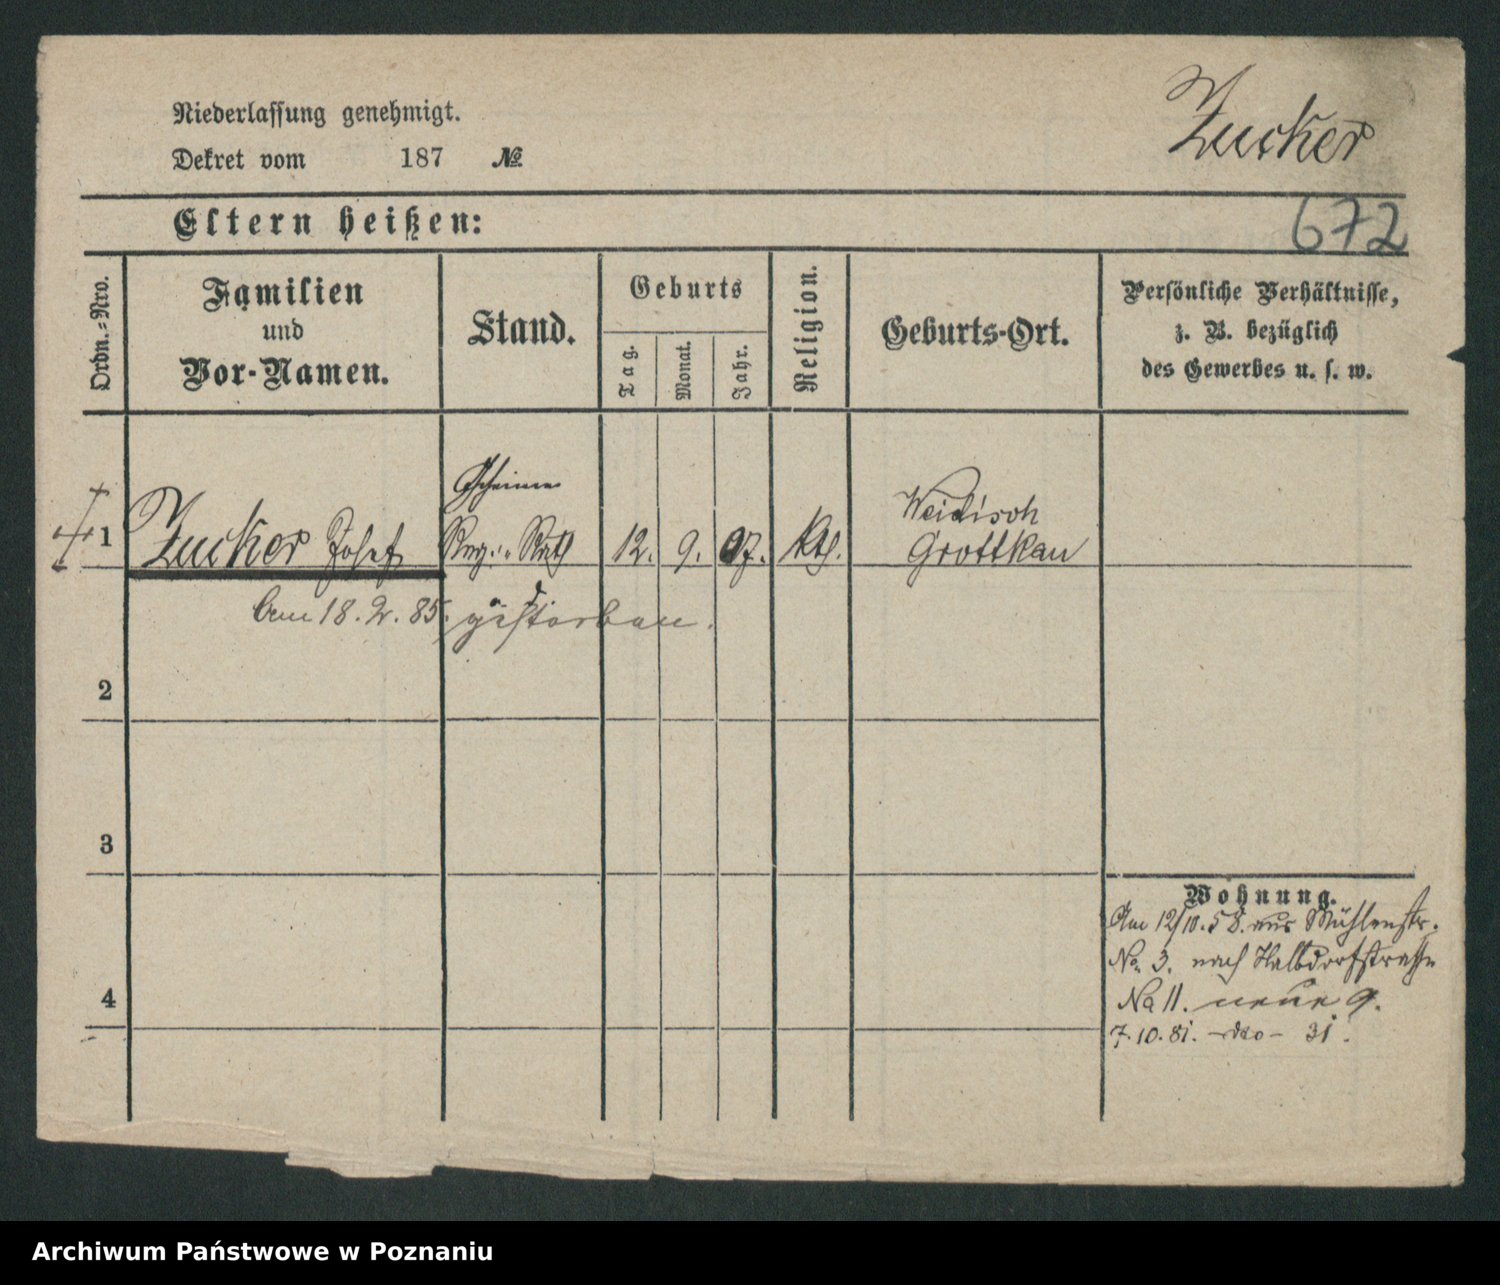 Niederlassung genehmigt.
Zucker
Dekret vom 187 №
Eltern heißen:
672
Ordn.-Nro.
Familien
und
Vor-Namen.
Stand.
Geburts
Tag.
Monat.
Jahr.
Religion.
Geburts-Ort.
Persönliche Verhältnisse,
z. B. bezüglich
des Gewerbes u. s. w.
Geheimer
Weidisch
1 Zucker Josef Reg.- Rath 12. 9. 07. kth. Grottkau
Am 18.2.85. gestorben.
2
3
4
Wohnung.
Am 12/10.58. aus Mühlenstr.
No 3. nach Halbdorfstrasse
No 11. neue 9.
7.10.81. -dto- 31.
Archiwum Państwowe w Poznaniu